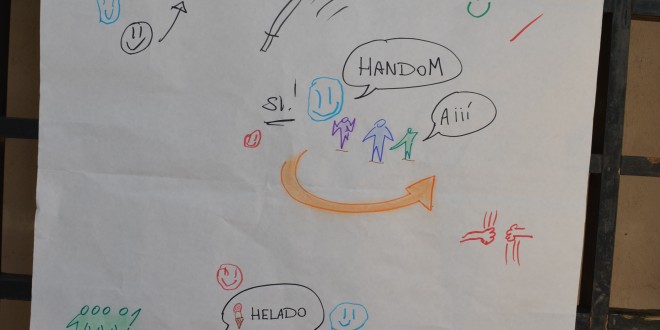 HANDOM
SI!
Aiií
HELADO